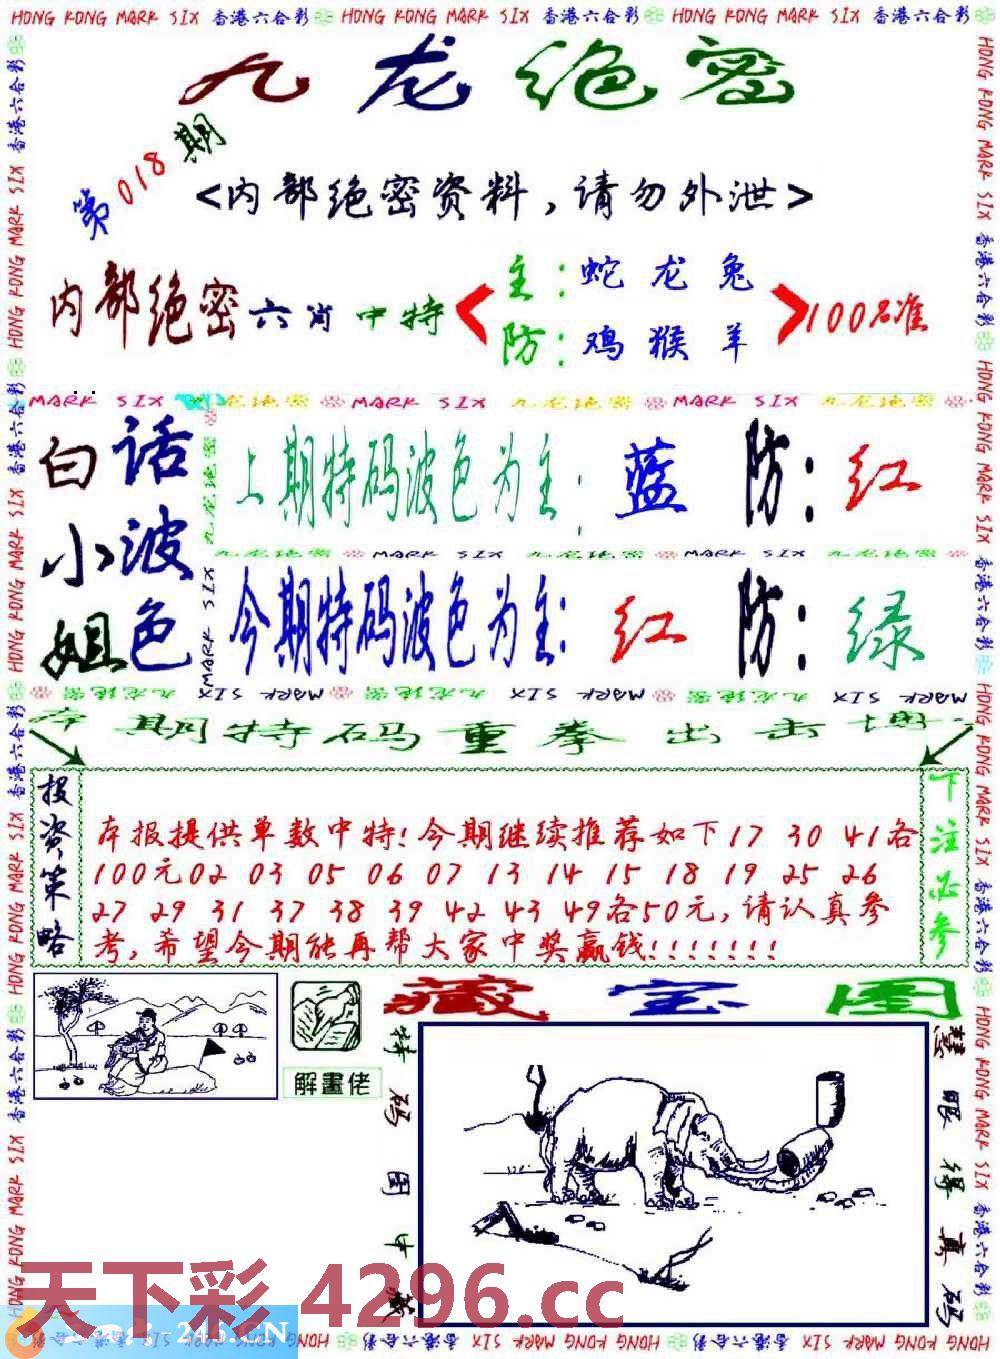 HONG KONG MARK SIX 香港六合彩 HONG KONG MARK SIX 香港六合彩 HONG KONG MARK SIX 香港六合彩
九龙绝密
第018期
<内部绝密资料,请勿外泄>
内部绝密六肖中特
主:蛇 龙 兔
防:鸡 猴 羊
100%准
MARK SIX 九龙绝密 MARK SIX 九龙绝密 MARK SIX 九龙绝密
白小姐
话波色
上期特码波色为主: 蓝 防: 红
九龙绝密 MARK SIX 九龙绝密 MARK SIX 九龙绝密
今期特码波色为主: 红 防: 绿
MARK SIX 九龙绝密 MARK SIX 九龙绝密 MARK SIX
本期特码重拳出击
投资策略
本报提供单数中特!今期继续推荐如下17 30 41各
100元02 03 05 06 07 13 14 15 18 19 25 26
27 29 31 37 38 39 42 43 49各50元,请认真参
考,希望今期能再帮大家中奖赢钱!!!!!!!
下注必参
藏宝图
解畫佬
特码图中藏
慧眼得真码
天下彩 4296.cc
246.CN
HONG KONG MARK SIX 香港六合彩